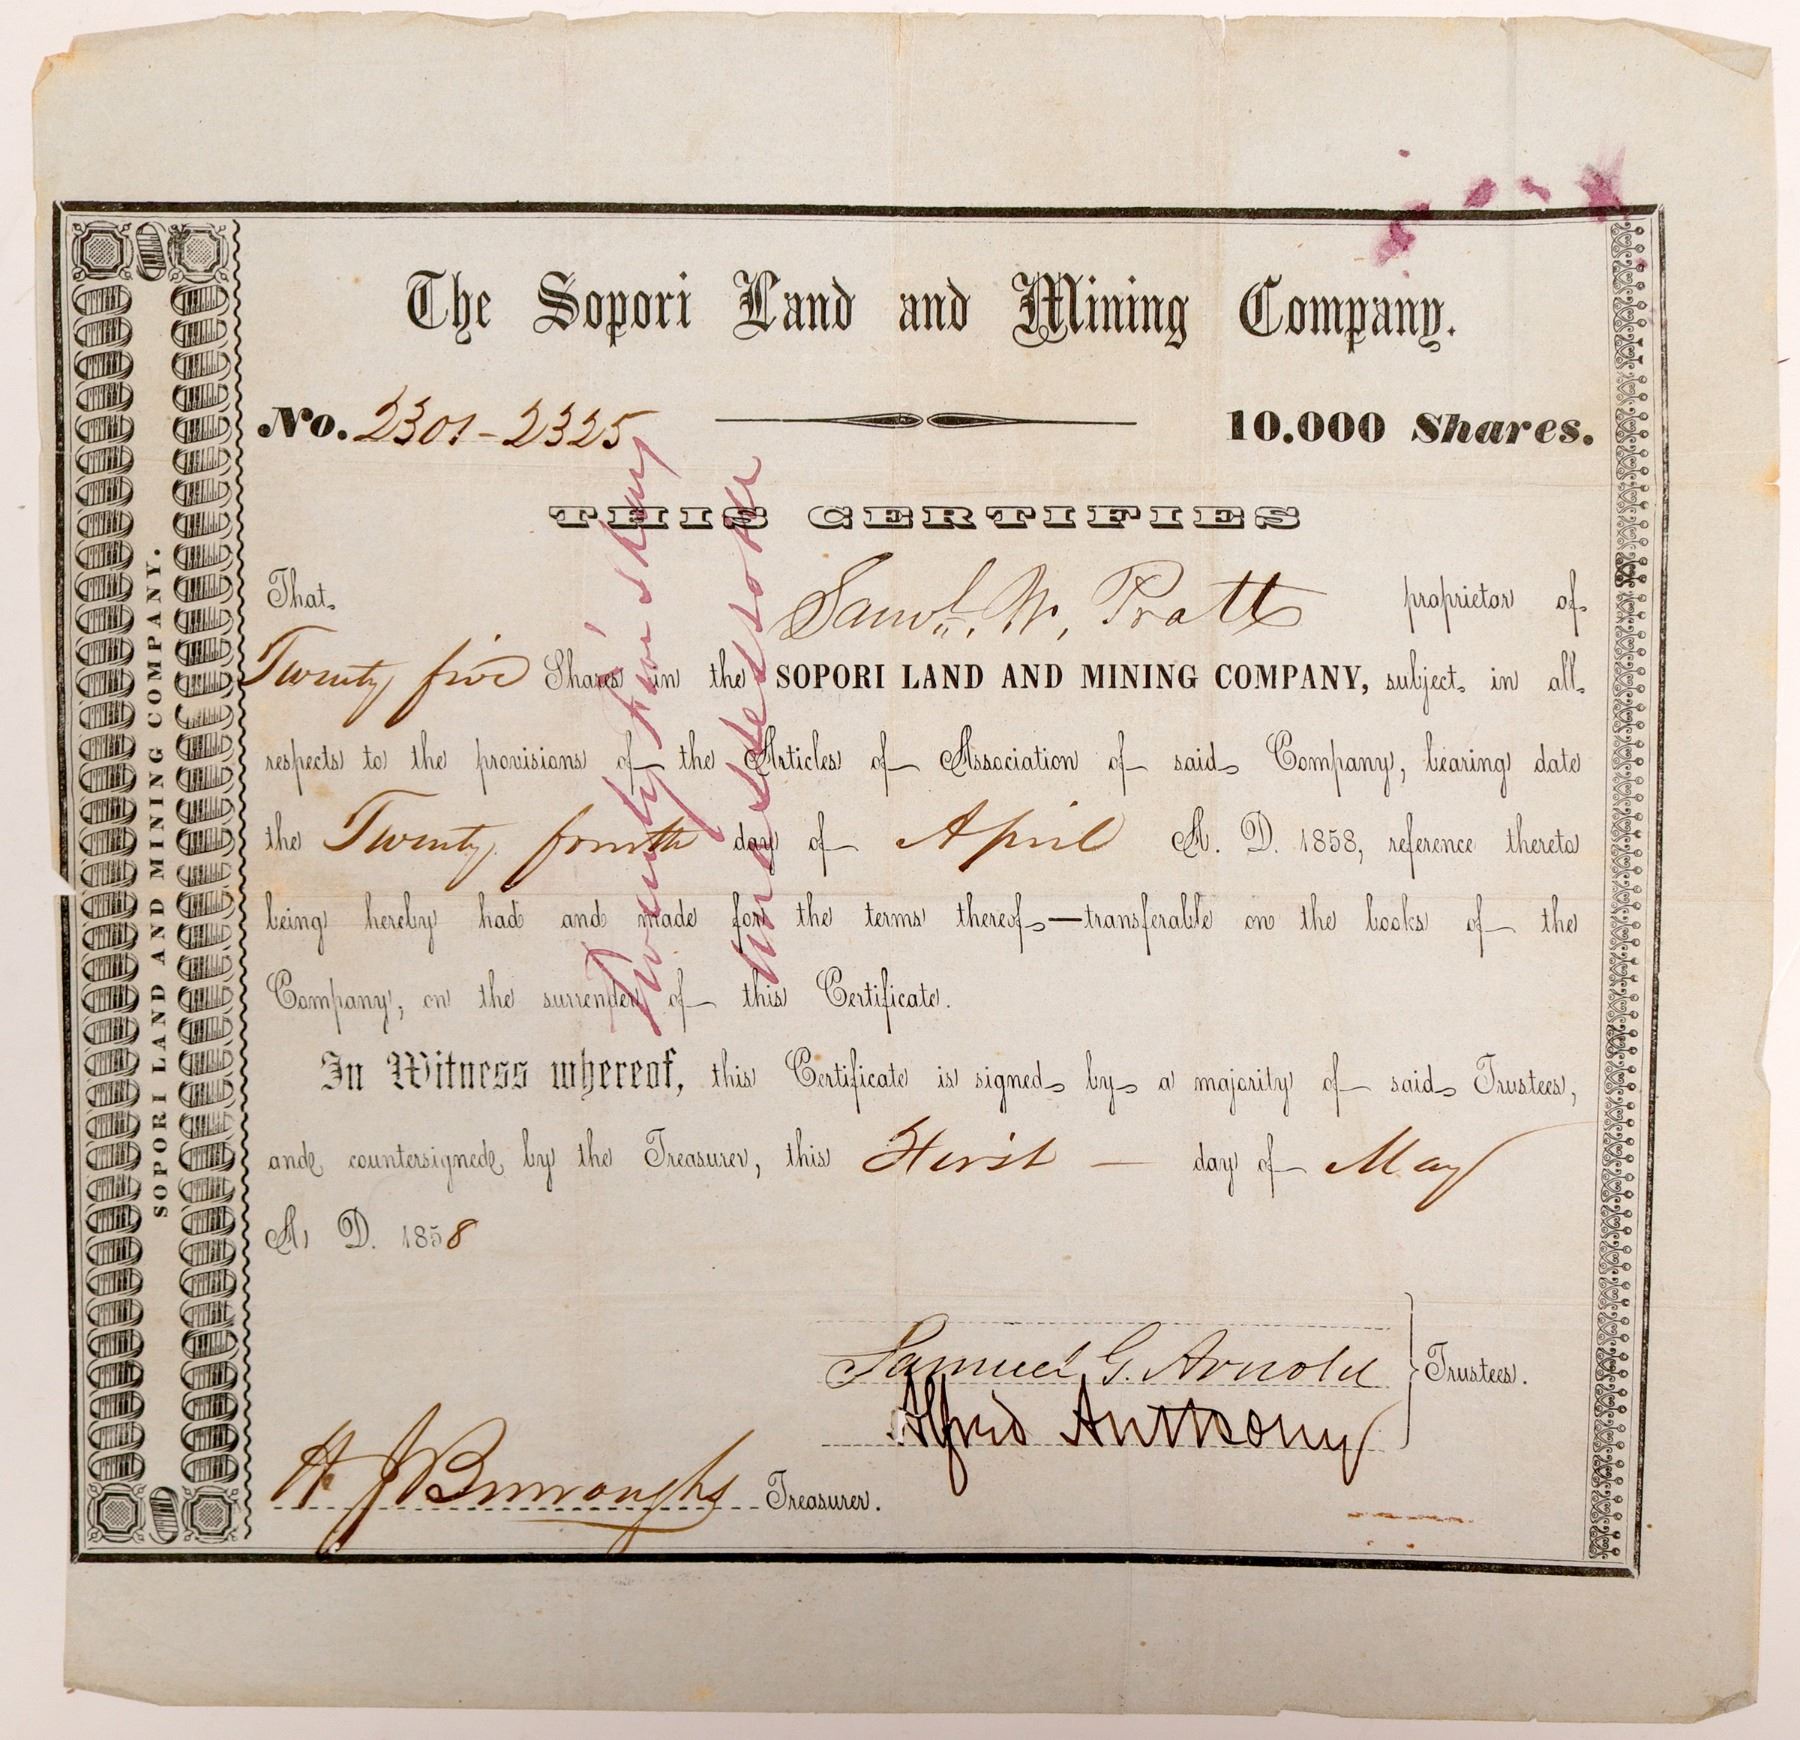 The Sopori Land and Mining Company.
No. 2301-2325
10.000 Shares.
THIS CERTIFIES
That Saml. W. Pratt proprietor of
Twenty five Shares in the SOPORI LAND AND MINING COMPANY, subject in all
respects to the provisions of the Articles of Association of said Company, bearing date
the Twenty fourth day of April A. D. 1858, reference thereto
being hereby had and made for the terms thereof—transferable on the books of the
Company, on the surrender of this Certificate.
In Witness whereof, this Certificate is signed by a majority of said Trustees,
and countersigned by the Treasurer, this First — day of May
A. D. 1858
Samuel G. Arnold
Alfred Anthony
Trustees.
H. J. Burroughs Treasurer.
SOPORI LAND AND MINING COMPANY.
Twenty five